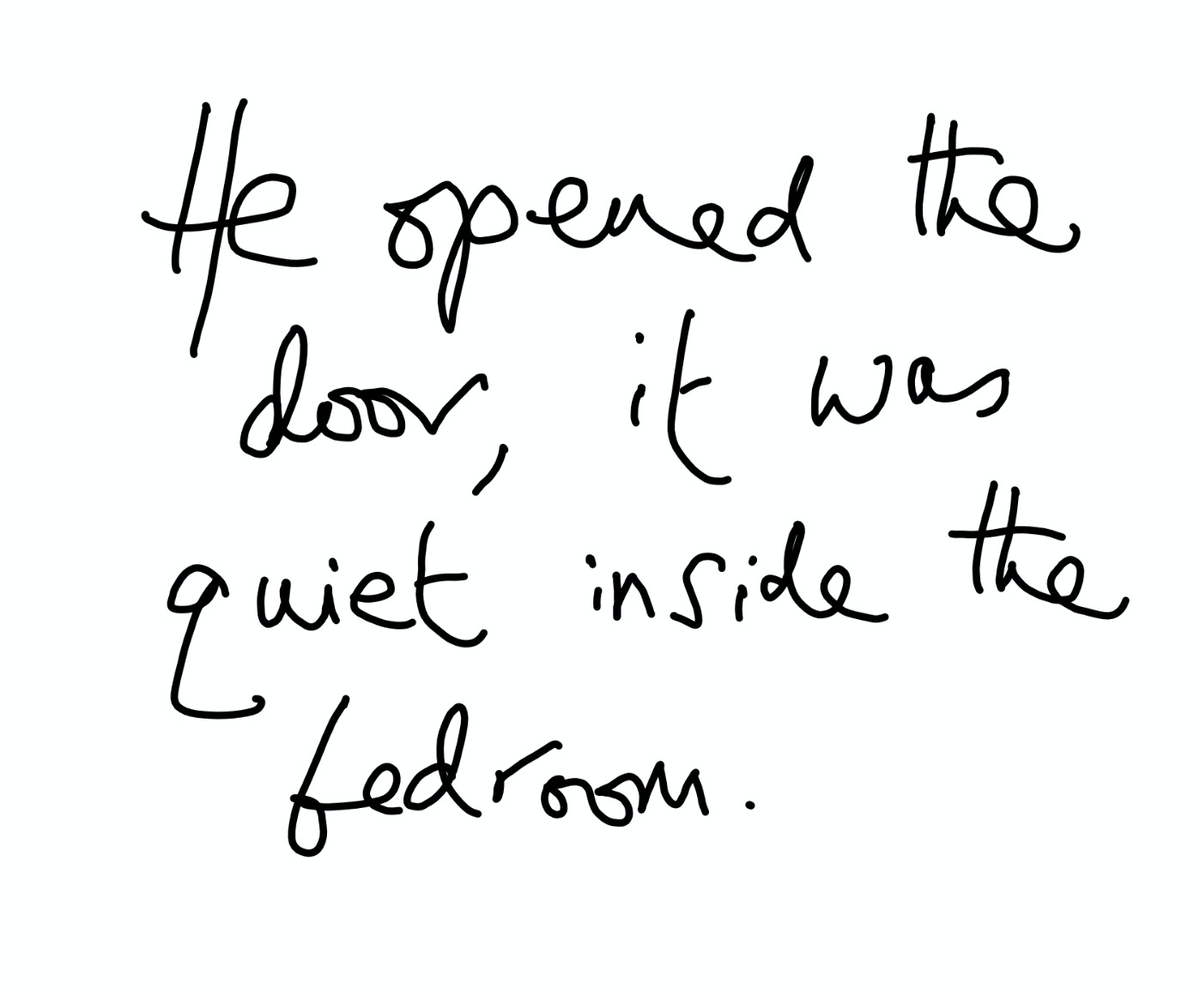 He opened the
door, it was
quiet inside the
bedroom.